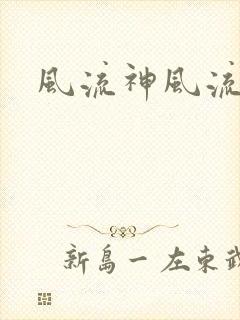 風流神風流
新島一左東武